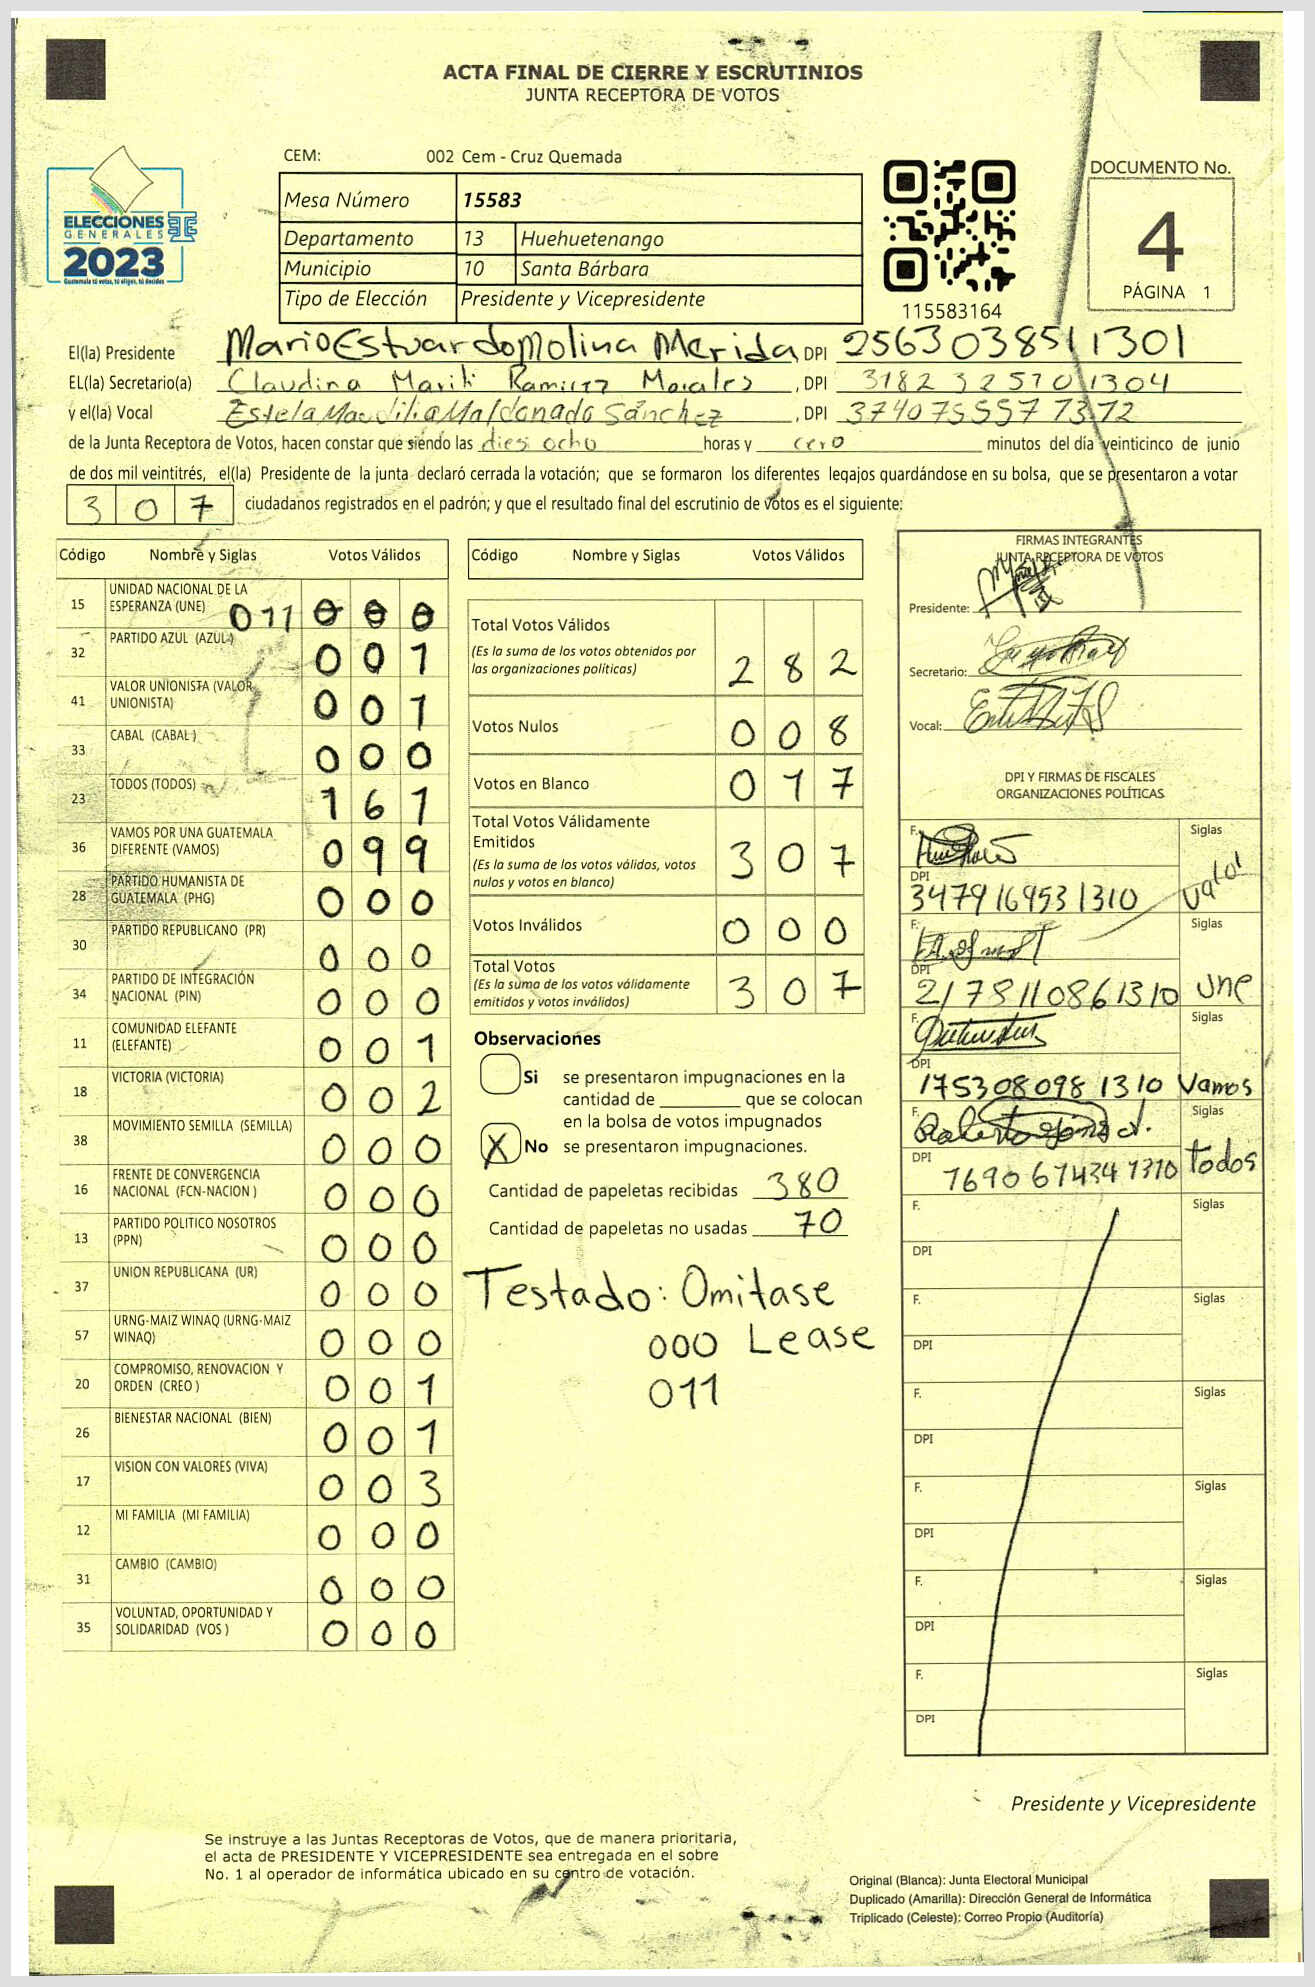 ACTA FINAL DE CIERRE Y ESCRUTINIOS
JUNTA RECEPTORA DE VOTOS
CEM: 002 Cem - Cruz Quemada
ELECCIONES
GENERALES
2023
Guatemala tú votas, tú eliges, tú decides
Mesa Número 15583
Departamento 13 Huehuetenango
Municipio 10 Santa Bárbara
Tipo de Elección Presidente y Vicepresidente
115583164
DOCUMENTO No.
4
PÁGINA 1
El(la) Presidente Mario Estuardo Molina Merida, DPI 2563038511301
EL(la) Secretario(a) Claudina Mariti Ramirez Morales, DPI 3182325701304
y el(la) Vocal Estela Maudilia Maldonado Sánchez, DPI 3740755577372
de la Junta Receptora de Votos, hacen constar que siendo las dies ocho horas y cero minutos del día veinticinco de junio
de dos mil veintitrés, el(la) Presidente de la junta declaró cerrada la votación; que se formaron los diferentes legajos quardándose en su bolsa, que se presentaron a votar
307 ciudadanos registrados en el padrón; y que el resultado final del escrutinio de votos es el siguiente:
Código Nombre y Siglas Votos Válidos
15 UNIDAD NACIONAL DE LA ESPERANZA (UNE) 011 000
32 PARTIDO AZUL (AZUL) 001
41 VALOR UNIONISTA (VALOR UNIONISTA) 001
33 CABAL (CABAL) 000
23 TODOS (TODOS) 161
36 VAMOS POR UNA GUATEMALA DIFERENTE (VAMOS) 099
28 PARTIDO HUMANISTA DE GUATEMALA (PHG) 000
30 PARTIDO REPUBLICANO (PR) 000
34 PARTIDO DE INTEGRACIÓN NACIONAL (PIN) 000
11 COMUNIDAD ELEFANTE (ELEFANTE) 001
18 VICTORIA (VICTORIA) 002
38 MOVIMIENTO SEMILLA (SEMILLA) 000
16 FRENTE DE CONVERGENCIA NACIONAL (FCN-NACION) 000
13 PARTIDO POLITICO NOSOTROS (PPN) 000
37 UNION REPUBLICANA (UR) 000
57 URNG-MAIZ WINAQ (URNG-MAIZ WINAQ) 000
20 COMPROMISO, RENOVACION Y ORDEN (CREO) 001
26 BIENESTAR NACIONAL (BIEN) 001
17 VISION CON VALORES (VIVA) 003
12 MI FAMILIA (MI FAMILIA) 000
31 CAMBIO (CAMBIO) 000
35 VOLUNTAD, OPORTUNIDAD Y SOLIDARIDAD (VOS) 000
Código Nombre y Siglas Votos Válidos
Total Votos Válidos
(Es la suma de los votos obtenidos por
las organizaciones políticas) 282
Votos Nulos 008
Votos en Blanco 017
Total Votos Válidamente
Emitidos
(Es la suma de los votos válidos, votos
nulos y votos en blanco) 307
Votos Inválidos 000
Total Votos
(Es la suma de los votos válidamente
emitidos y votos inválidos) 307
Observaciones
Si se presentaron impugnaciones en la
cantidad de ________ que se colocan
en la bolsa de votos impugnados
X No se presentaron impugnaciones.
Cantidad de papeletas recibidas 380
Cantidad de papeletas no usadas 70
Testado: Omitase
000 Lease
011
FIRMAS INTEGRANTES
JUNTA RECEPTORA DE VOTOS
Presidente:
Secretario:
Vocal:
DPI Y FIRMAS DE FISCALES
ORGANIZACIONES POLÍTICAS
F. Siglas
DPI 3479169531310 Valor
F. Siglas
DPI 2178110861310 Une
F. Siglas
DPI 1753080981310 Vamos
F. Siglas
DPI 1690674341310 todos
F. Siglas
DPI
F. Siglas
DPI
F. Siglas
DPI
F. Siglas
DPI
F. Siglas
DPI
F. Siglas
DPI
Presidente y Vicepresidente
Se instruye a las Juntas Receptoras de Votos, que de manera prioritaria,
el acta de PRESIDENTE Y VICEPRESIDENTE sea entregada en el sobre
No. 1 al operador de informática ubicado en su centro de votación.
Original (Blanca): Junta Electoral Municipal
Duplicado (Amarilla): Dirección General de Informática
Triplicado (Celeste): Correo Propio (Auditoría)